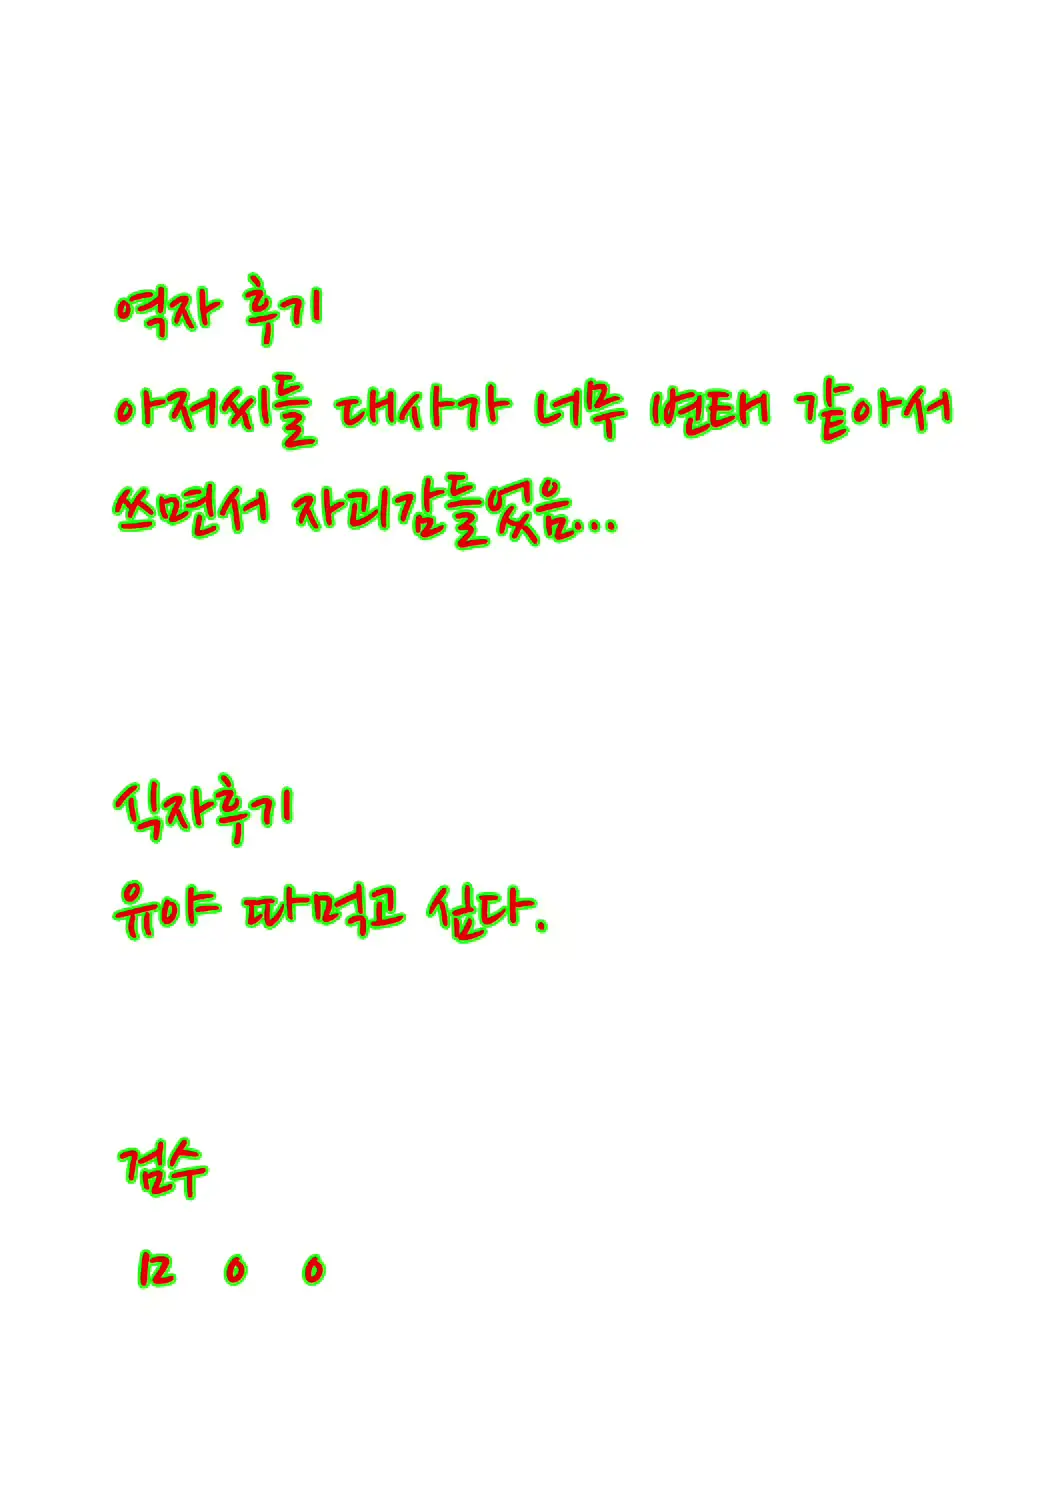 역자 후기
아저씨들 대사가 너무 변태 같아서
쓰면서 자괴감들었음...
식자후기
유야 따먹고 싶다.
검수
12 0 0